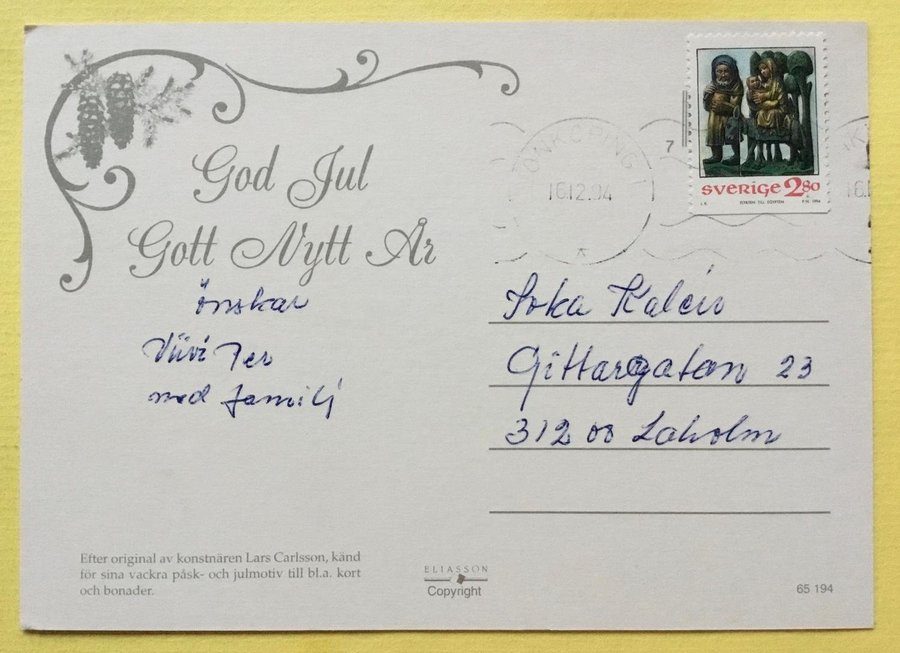 God Jul
Gott Nytt År
önskar
Viivi Per
med familj
JÖNKÖPING
16.12.94
7
SVERIGE 2.80
FLYKTEN TILL EGYPTEN
1994
Kalew
Gittargatan 23
312 00 Laholm
Efter original av konstnären Lars Carlsson, känd
för sina vackra påsk- och julmotiv till bl.a. kort
och bonader.
ELIASSON
Copyright
65 194